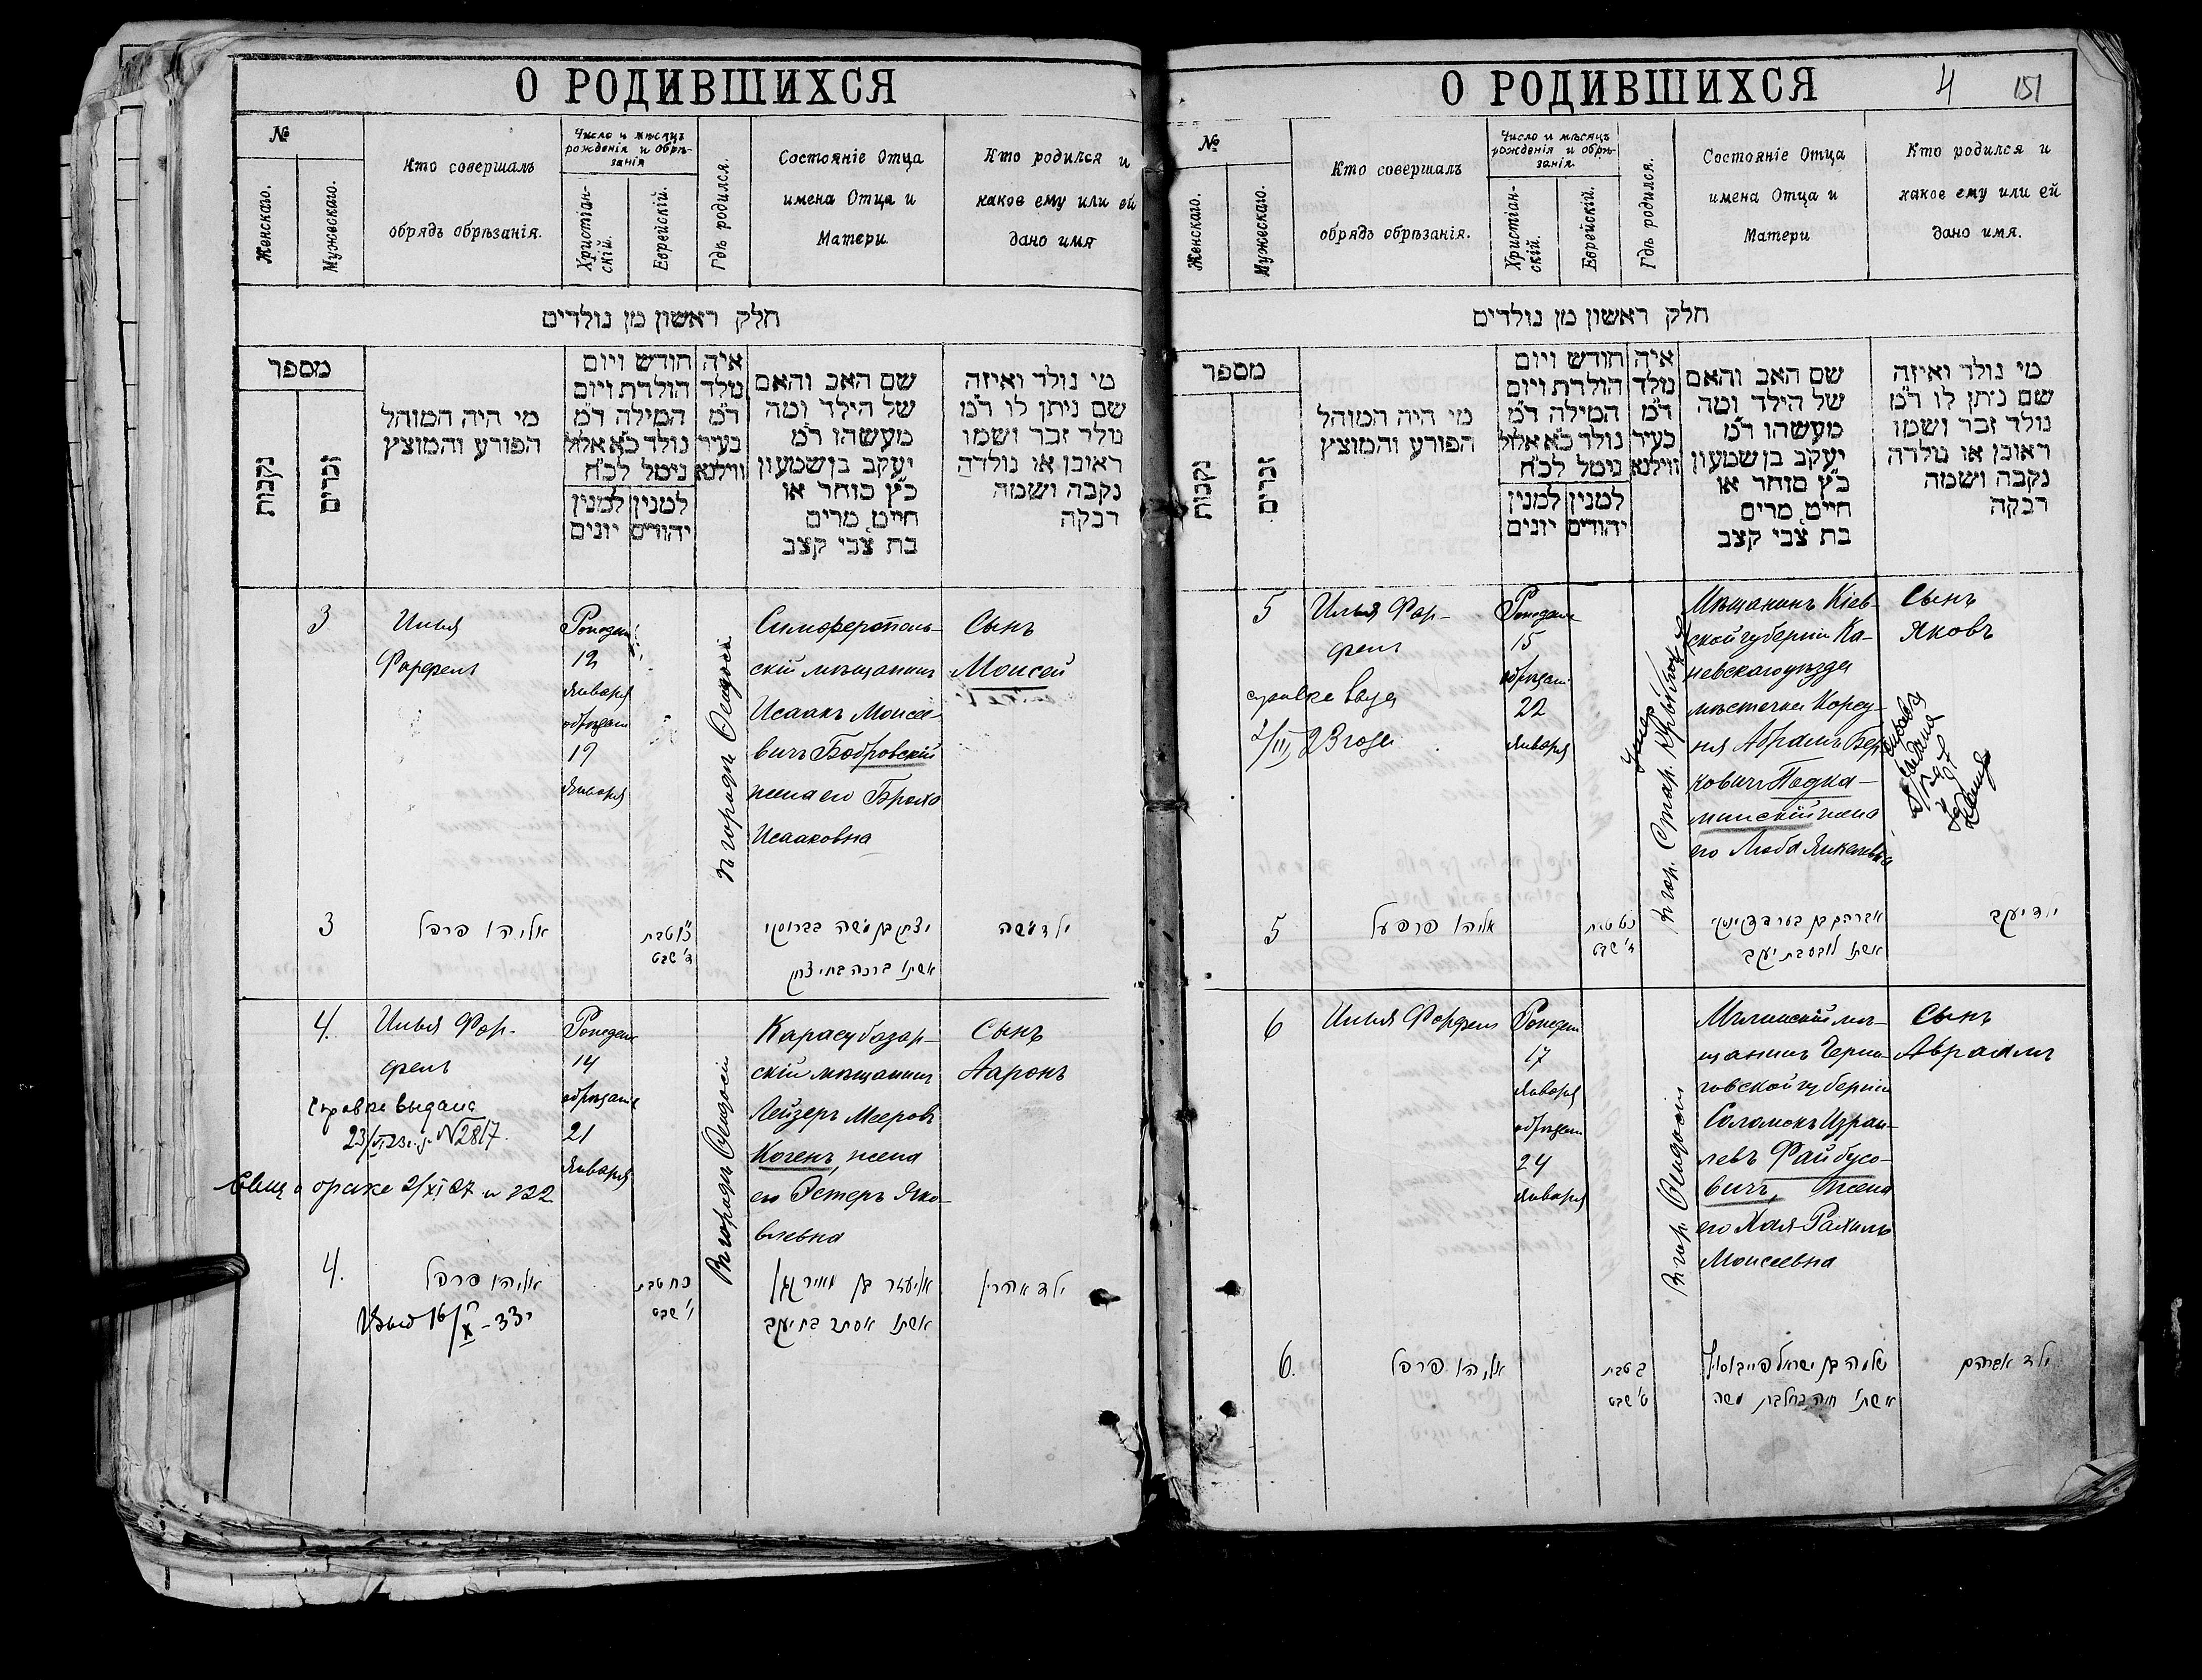 О РОДИВШИХСЯ
№
Женскаго.
Мужескаго.
Кто совершалъ
обрядъ обрѣзанія.
Число и мѣсяцъ
рожденія и обрѣ-
занія
Христіан-
скій.
Еврейскій.
Гдѣ родился.
Состояніе Отца
имена Отца и
Матери.
Кто родился и
какое ему или ей
дано имя
חלק ראשון מן נולדים
מספר
נקבות
זכרים
מי היה המוהל
הפורע והמוצץ
חודש ויום
הולדת ויום
המילה ד״מ
נולד כ״א אלול
נימל לכ״ח
למנין
יהודים
למנין
יונים
איה
נולד
ד״מ
בעיר
ווילנא
שם האב והאם
של הילד ומה
מעשהו ד״מ
יעקב בן שמעון
כ״ץ סוחר או
חייט מרים
בת צבי קצב
מי נולד ואיזה
שם ניתן לו ד״מ
נולד זכר ושמו
ראובן או נולדה
נקבה ושמה
רבקה
3
Илья
Фарфель
12
Января
19
Января
Въ городѣ Ѳеодосіи
Симферополь-
скій мѣщанинъ
Исаакъ Моисее-
вичъ Бобровскій
жена его Броха
Исааковна
Сынъ
Моисей
3
אליהו פרפל
יצחק בן משה
אשתו ברכה בת יצחק
ילד משה
4.
Илья Фар-
фель
Справка выдана
№2817.
14
21
Января
Въ городѣ Ѳеодосіи
Карасубазар-
скій мѣщанинъ
Лейзеръ Мееровъ
Когенъ, жена
его Эстеръ Яко-
влевна
Сынъ
Ааронъ
4.
אליהו פרפל
כח טבת
אליעזר בן מאיר כהן
אשתו אסתר בת יעקב
ילד אהרן
О РОДИВШИХСЯ
4
151
№
Женскаго.
Мужескаго.
Кто совершалъ
обрядъ обрѣзанія.
Число и мѣсяцъ
рожденія и обрѣ-
занія.
Христіан-
скій.
Еврейскій.
Гдѣ родился.
Состояніе Отца
имена Отца и
Матери
Кто родился и
какое ему или ей
дано имя.
חלק ראשון מן נולדים
מספר
נקבות
זכרים
מי היה המוהל
הפורע והמוצץ
חודש ויום
הולדת ויום
המילה ד״מ
נולד כ״א אלול
נימל לכ״ח
למנין
יהודים
למנין
יונים
איה
נולד
ד״מ
בעיר
ווילנא
שם האב והאם
של הילד ומה
מעשהו ד״מ
יעקב בן שמעון
כ״ץ סוחר או
חייט מרים
בת צבי קצב
מי נולד ואיזה
שם ניתן לו ד״מ
נולד זכר ושמו
ראובן או נולדה
נקבה ושמה
רבקה
5
Илья Фар-
фель
23 года
15
22
Января
Въ гор. Стар. Крыму
Мѣщанинъ Кіев-
ской губерніи Ка-
невскаго уѣзда
мѣстечка Корсу-
ня Абрамъ Бер-
ковичъ Подка-
минскій жена
его Люба Янкелевна
Сынъ
Яковъ
5
אליהו פרפעל
כט טבת
ילד יעקב
6
Илья Фарфель
17
Января
24
Января
Въ гор. Ѳеодосіи
Мглинскій мѣ-
щанинъ Черни-
говской губерніи
Соломонъ Израи-
левъ Файбусо-
вичъ, жена
его Хая-Рахиль
Моисеевна
Сынъ
Авраамъ
6.
אליהו פרפל
ילד אברהם